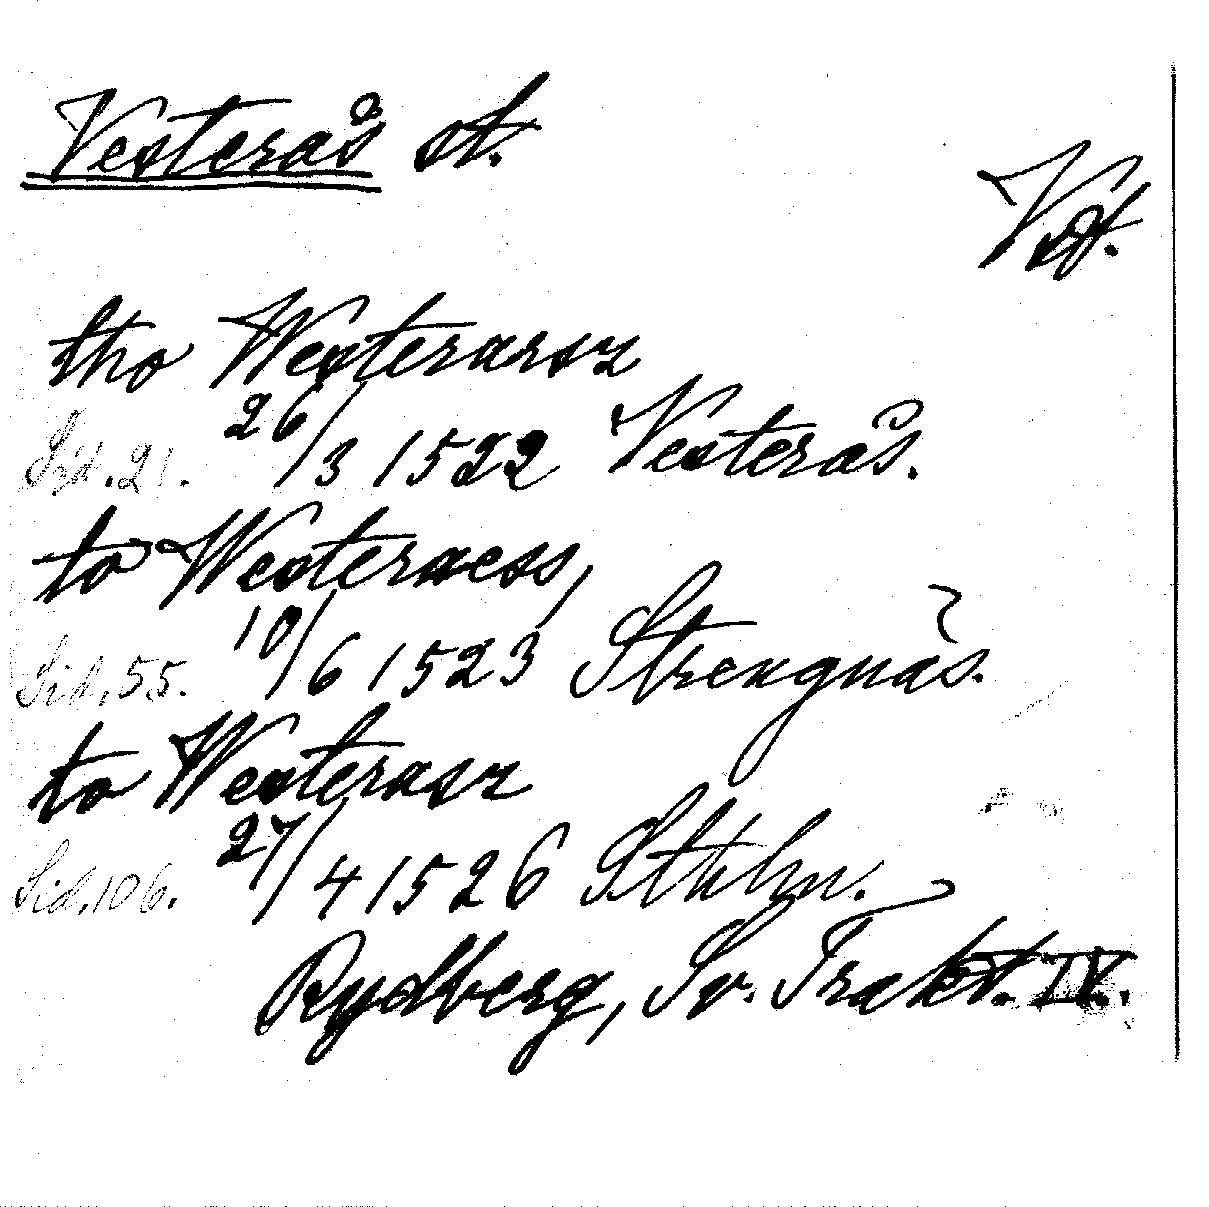 Vesterås st.
Vstr.
tho Westerarsz
Sid. 21. 26/3 1522 Vesterås.
to Westeraess,
Sid. 55. 10/6 1523 Strengnäs.
to Westerasz
Sid. 106. 27/4 1526 Sthlm.
Rydberg, Sv. Trakt. IV.